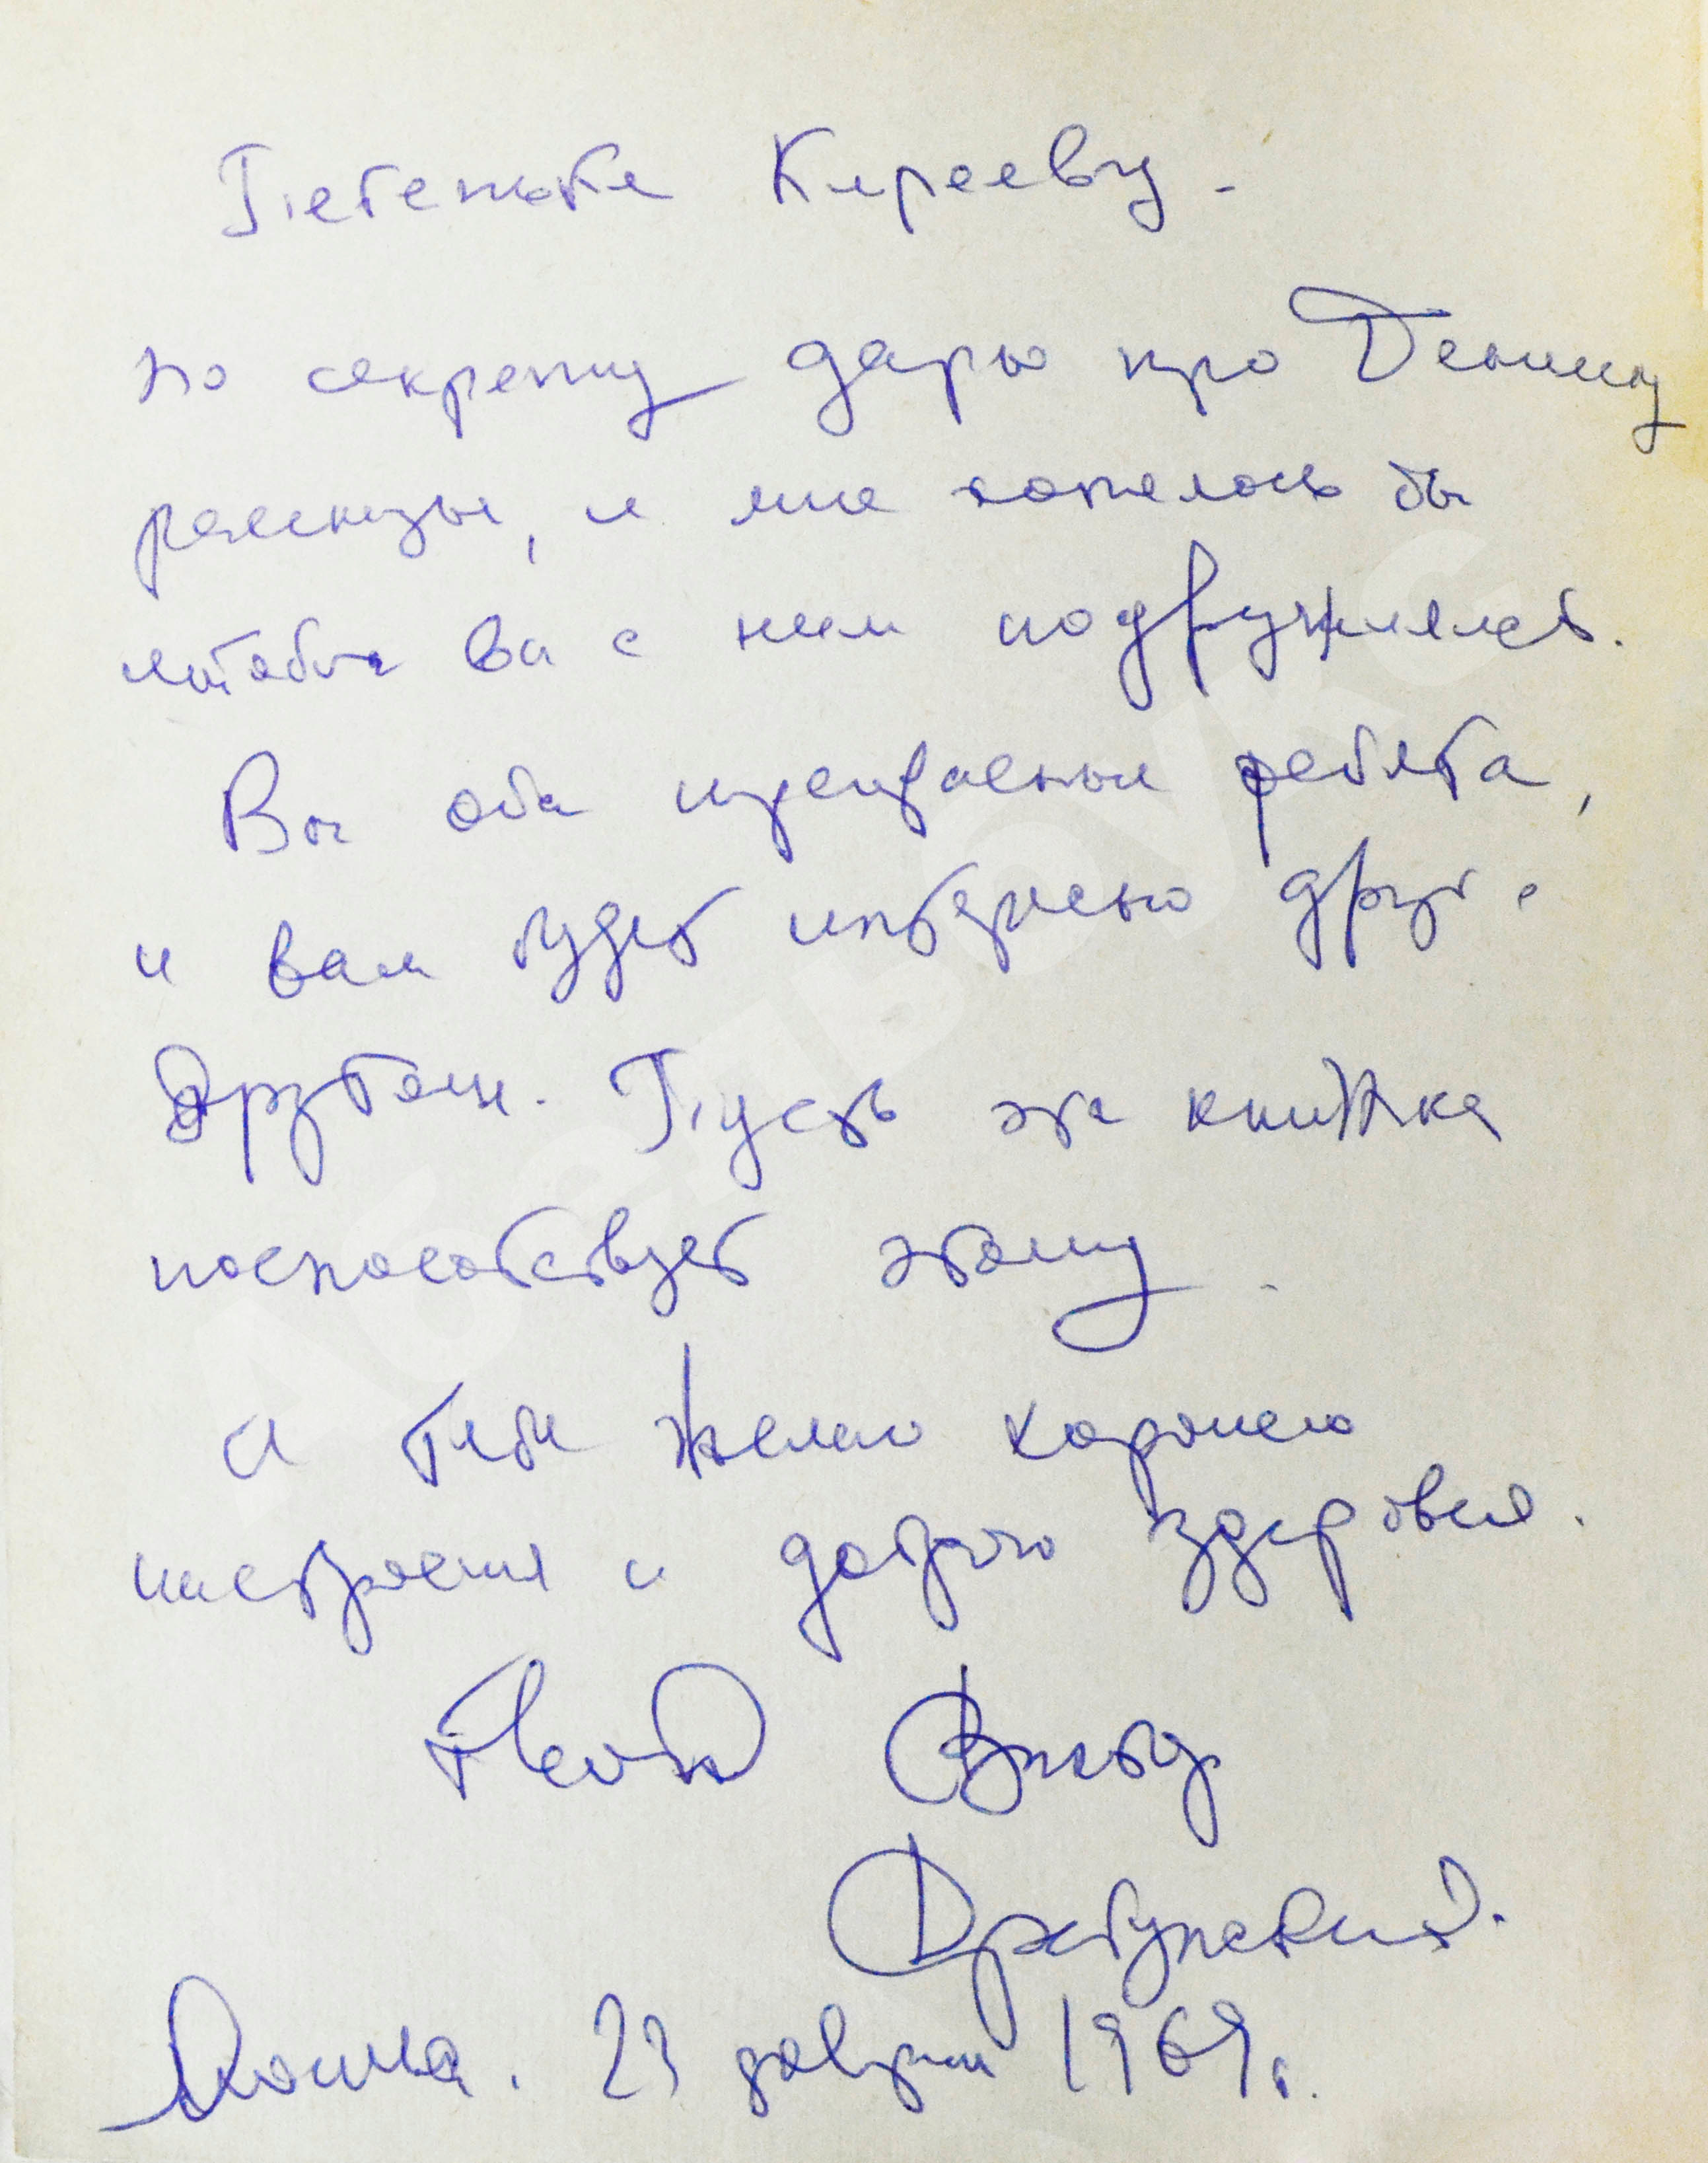 Петеньке Кирееву -
по секрету дарю про Дениску
рассказы, и мне хотелось бы
чтобы вы с ним подружились.
Вы оба прекрасные ребята,
и вам будет интересно друг с
другом. Пусть эта книжка
поспособствует этому.
А тебе желаю хорошего
настроения и доброго здоровья.
Твой Виктор
Драгунский.
Москва. 23 февраля 1969 г.